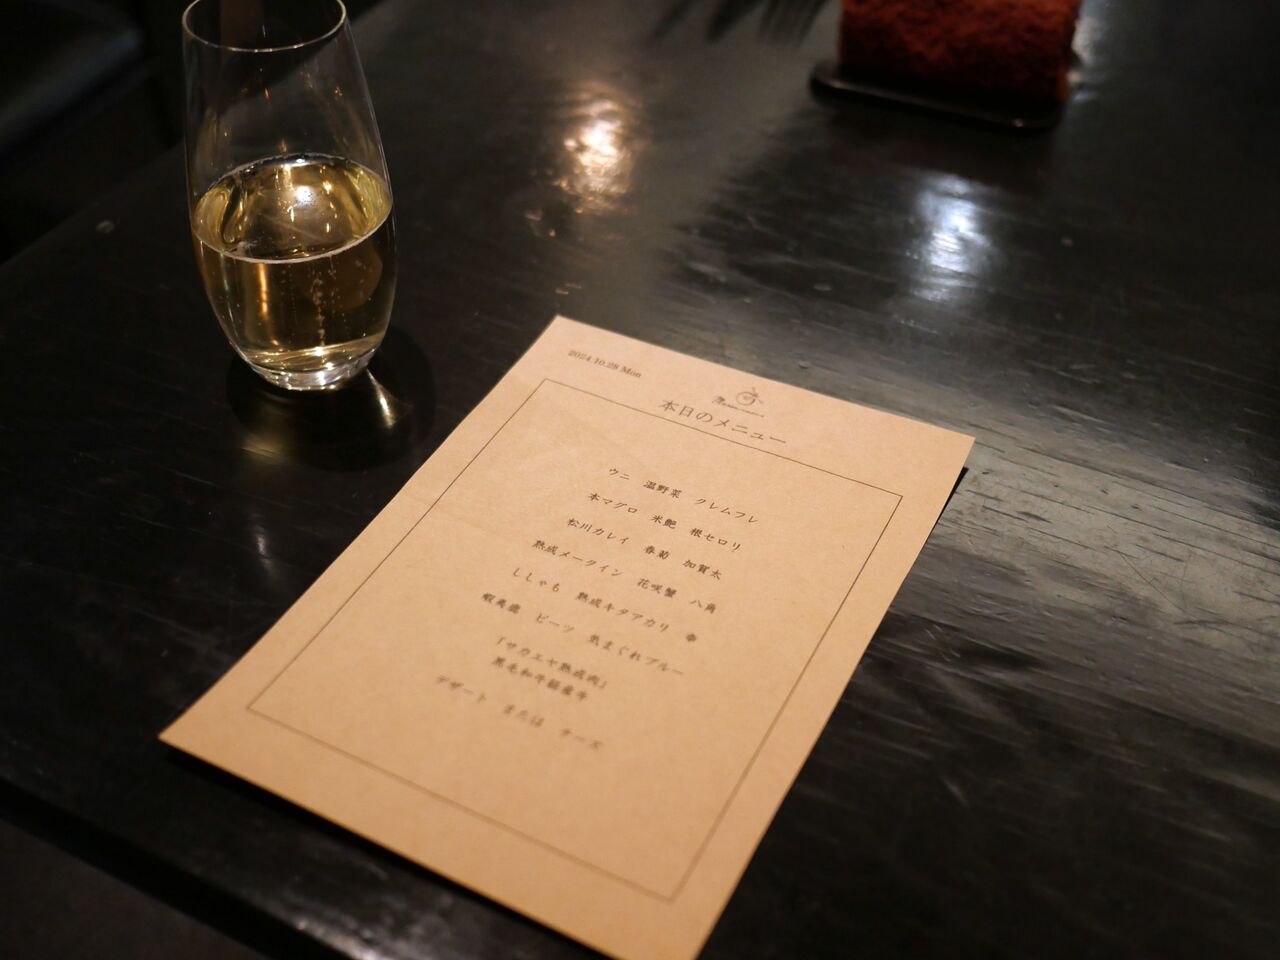 2024.10.28 Mon
本日のメニュー
ウニ 温野菜 クレムフレ
本マグロ 米麹 根セロリ
松川カレイ 春菊 加賀太
熟成メークイン 花咲蟹 八角
ししゃも 熟成キタアカリ 傘
蝦夷鹿 ビーツ 気まぐれブルー
「サカエヤ熟成肉」
黒毛和牛経産牛
デザート または チーズ